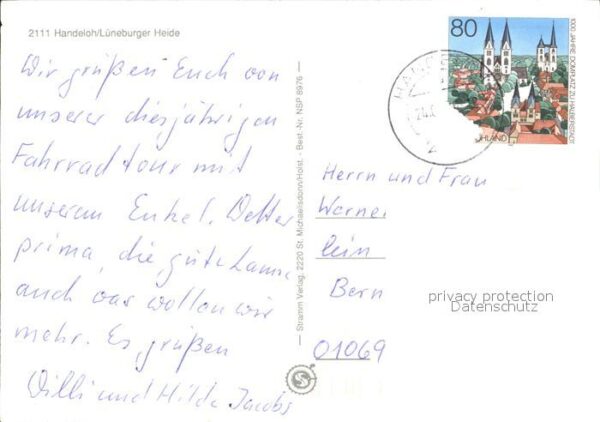 2111 Handeloh/Lüneburger Heide
Wir grüßen Euch von
unserer diesjährigen
Fahrradtour mit
unserem Enkel. Wetter
prima, die gute Laune
auch was wollen wir
mehr. Es grüßen
Willi und Hilda Jacobs
— Stramm Verlag, 2220 St. Michaelisdonn/Holst. - Best.-Nr. NSP 8976 —
80
1000 JAHRE DOMPLATZ ZU HALBERSTADT
Herrn und Frau
Werner
Bern
01069
privacy protection
Datenschutz